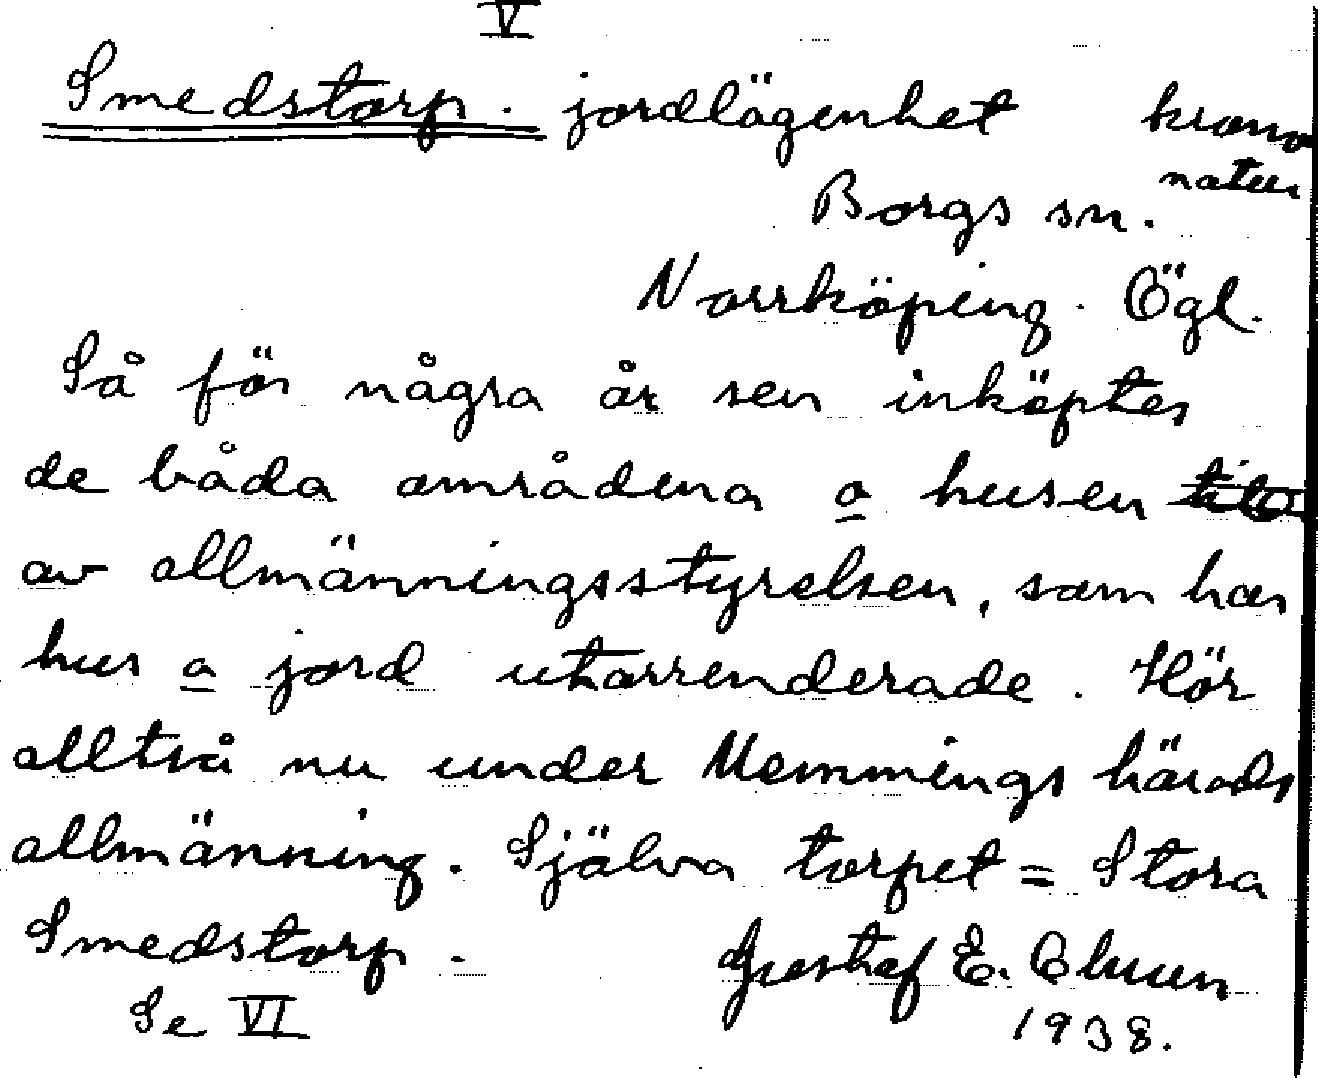 V
Smedstorp. jordlägenhet krono
natur
Borgs sn.
Norrköping. Ögl.
Så för några år sen inköptes
de båda områdena o husen till
av allmänningsstyrelsen, som har
hus o jord utarrenderade. Hör
alltså nu under Memmings härads
allmänning. Själva torpet = Stora
Smedstorp.
Gustaf E.
Se VI
1938.